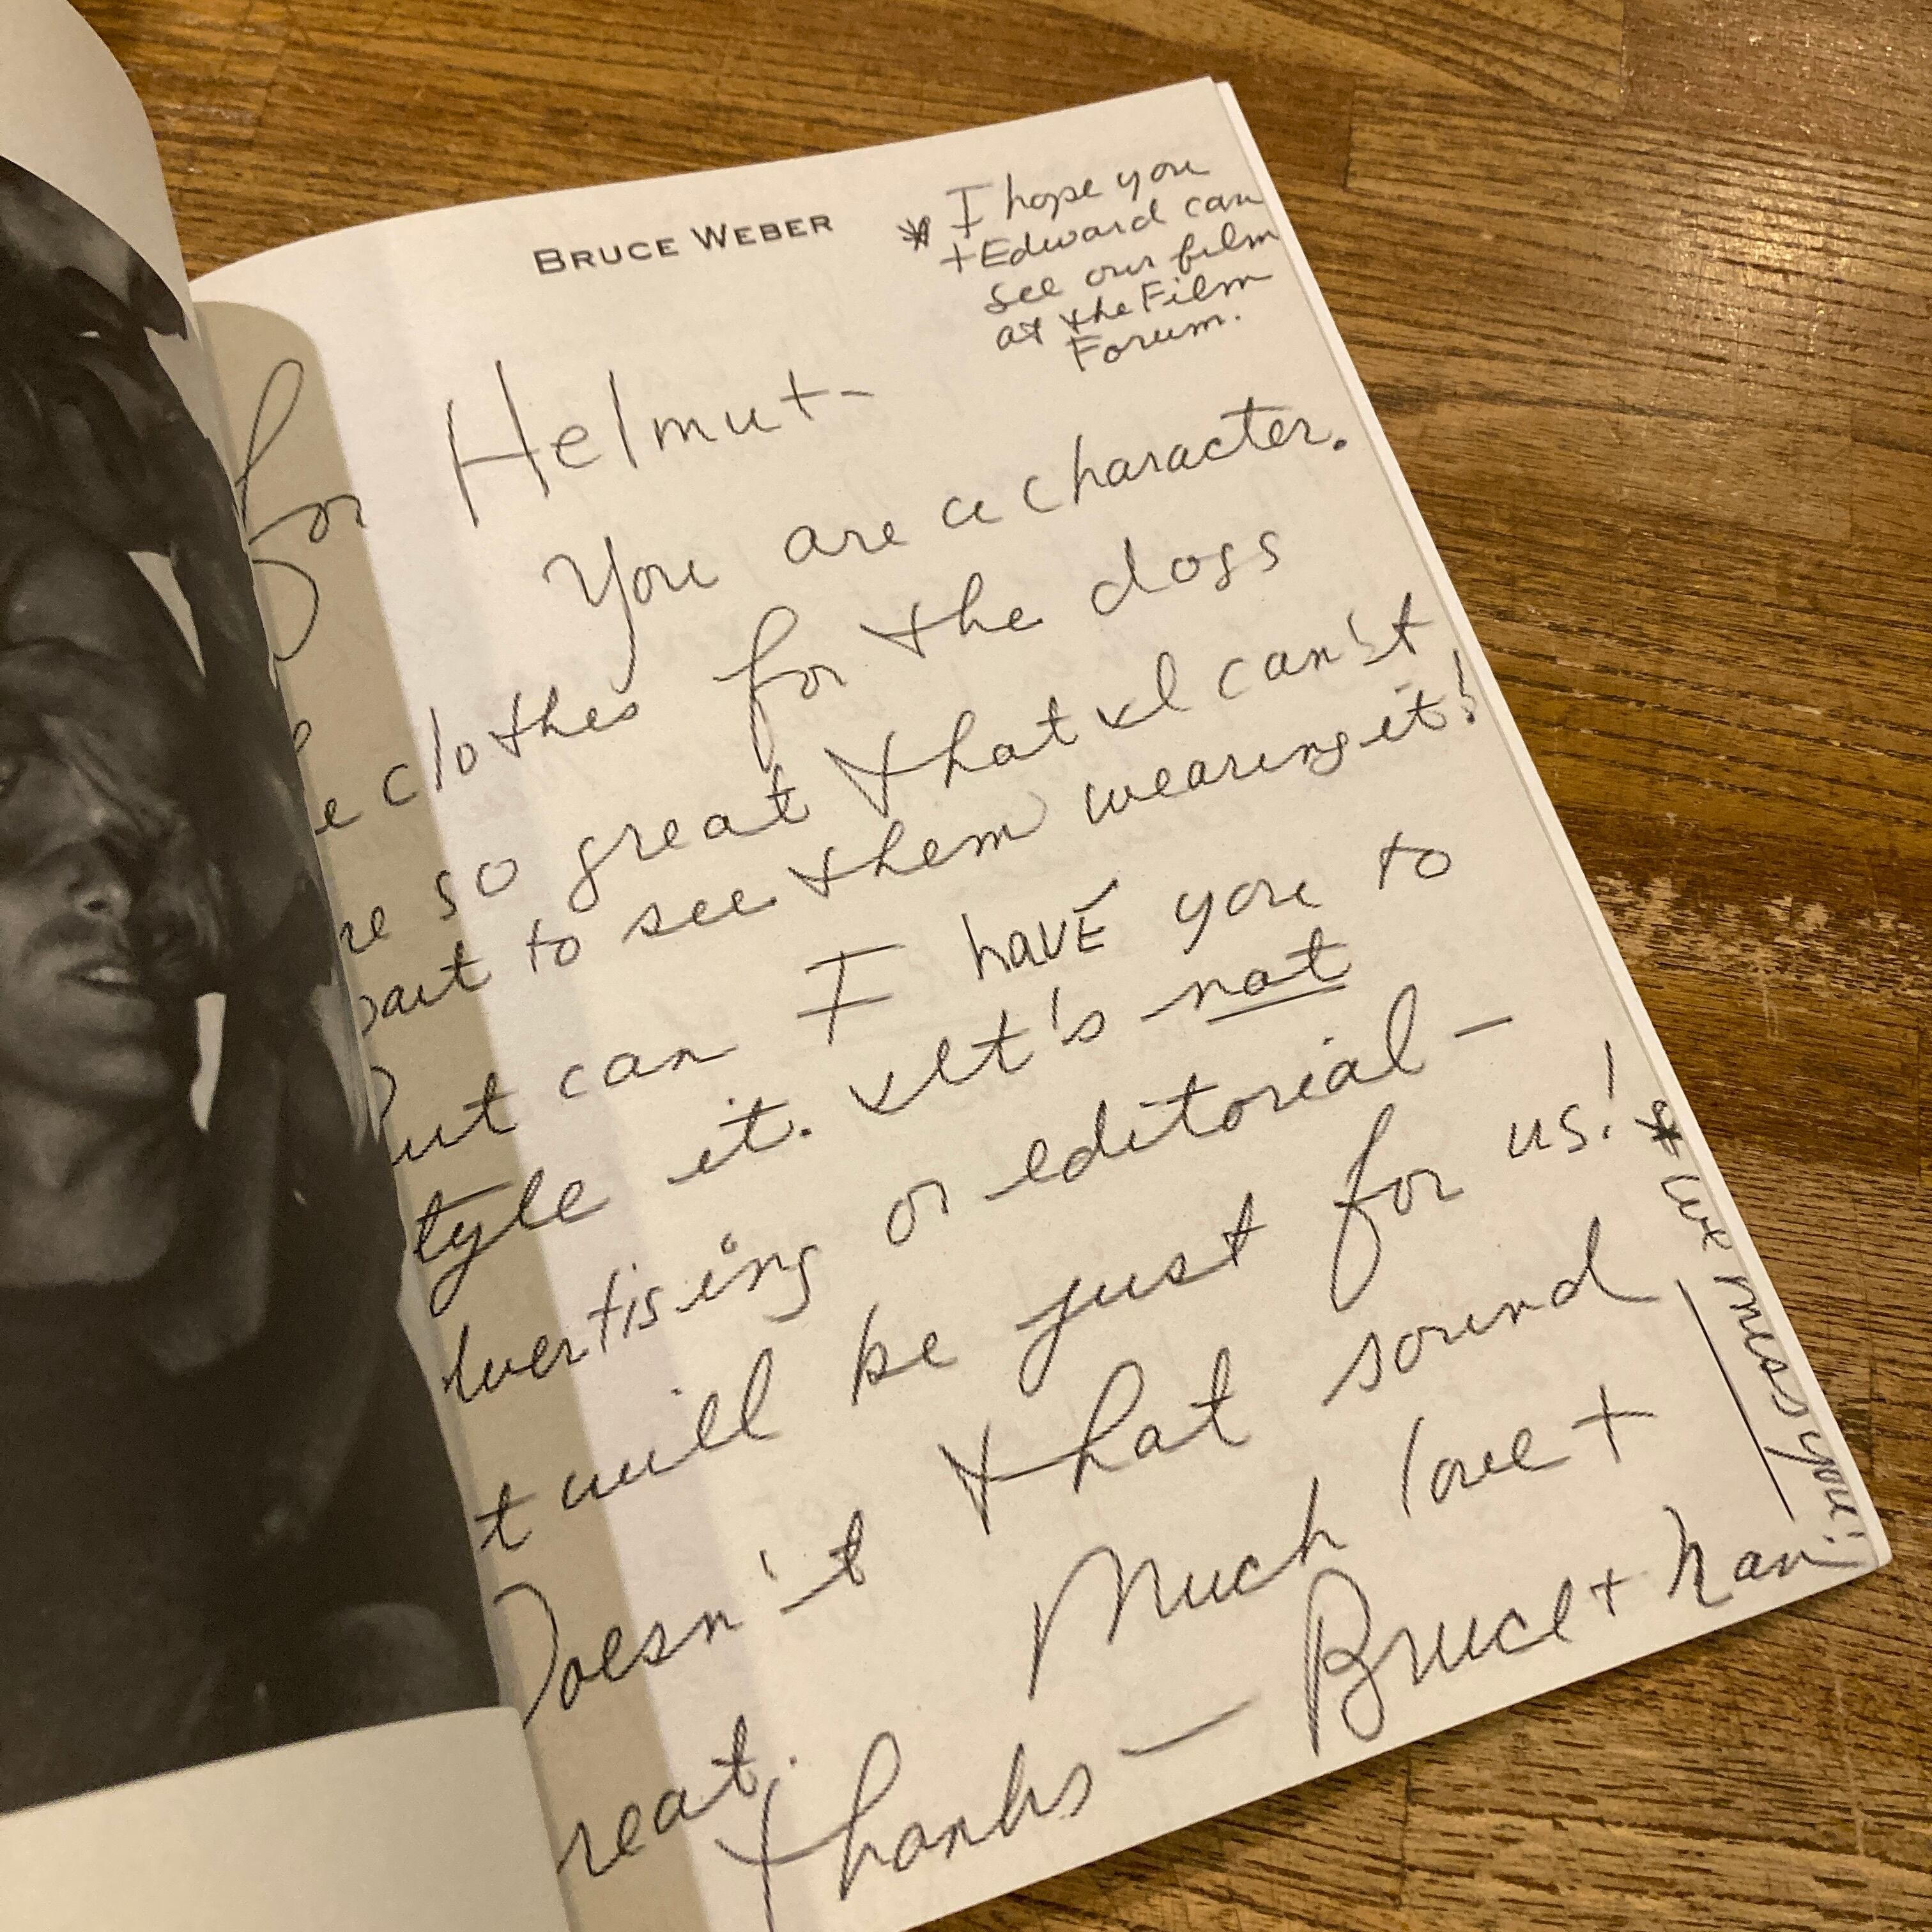 BRUCE WEBER
* I hope you
+ Edward can
see our film
at the Film
Forum.
for Helmut-
You are a character.
e clothes for the dogs
re so great that I can't
ait to see them wearing it!
ut can I have you to
tyle it. It's not
dvertising or editorial -
t will be just for us!
Doesn't that sound
reat.
Much love +
thanks - Bruce + Nan
* we miss you!